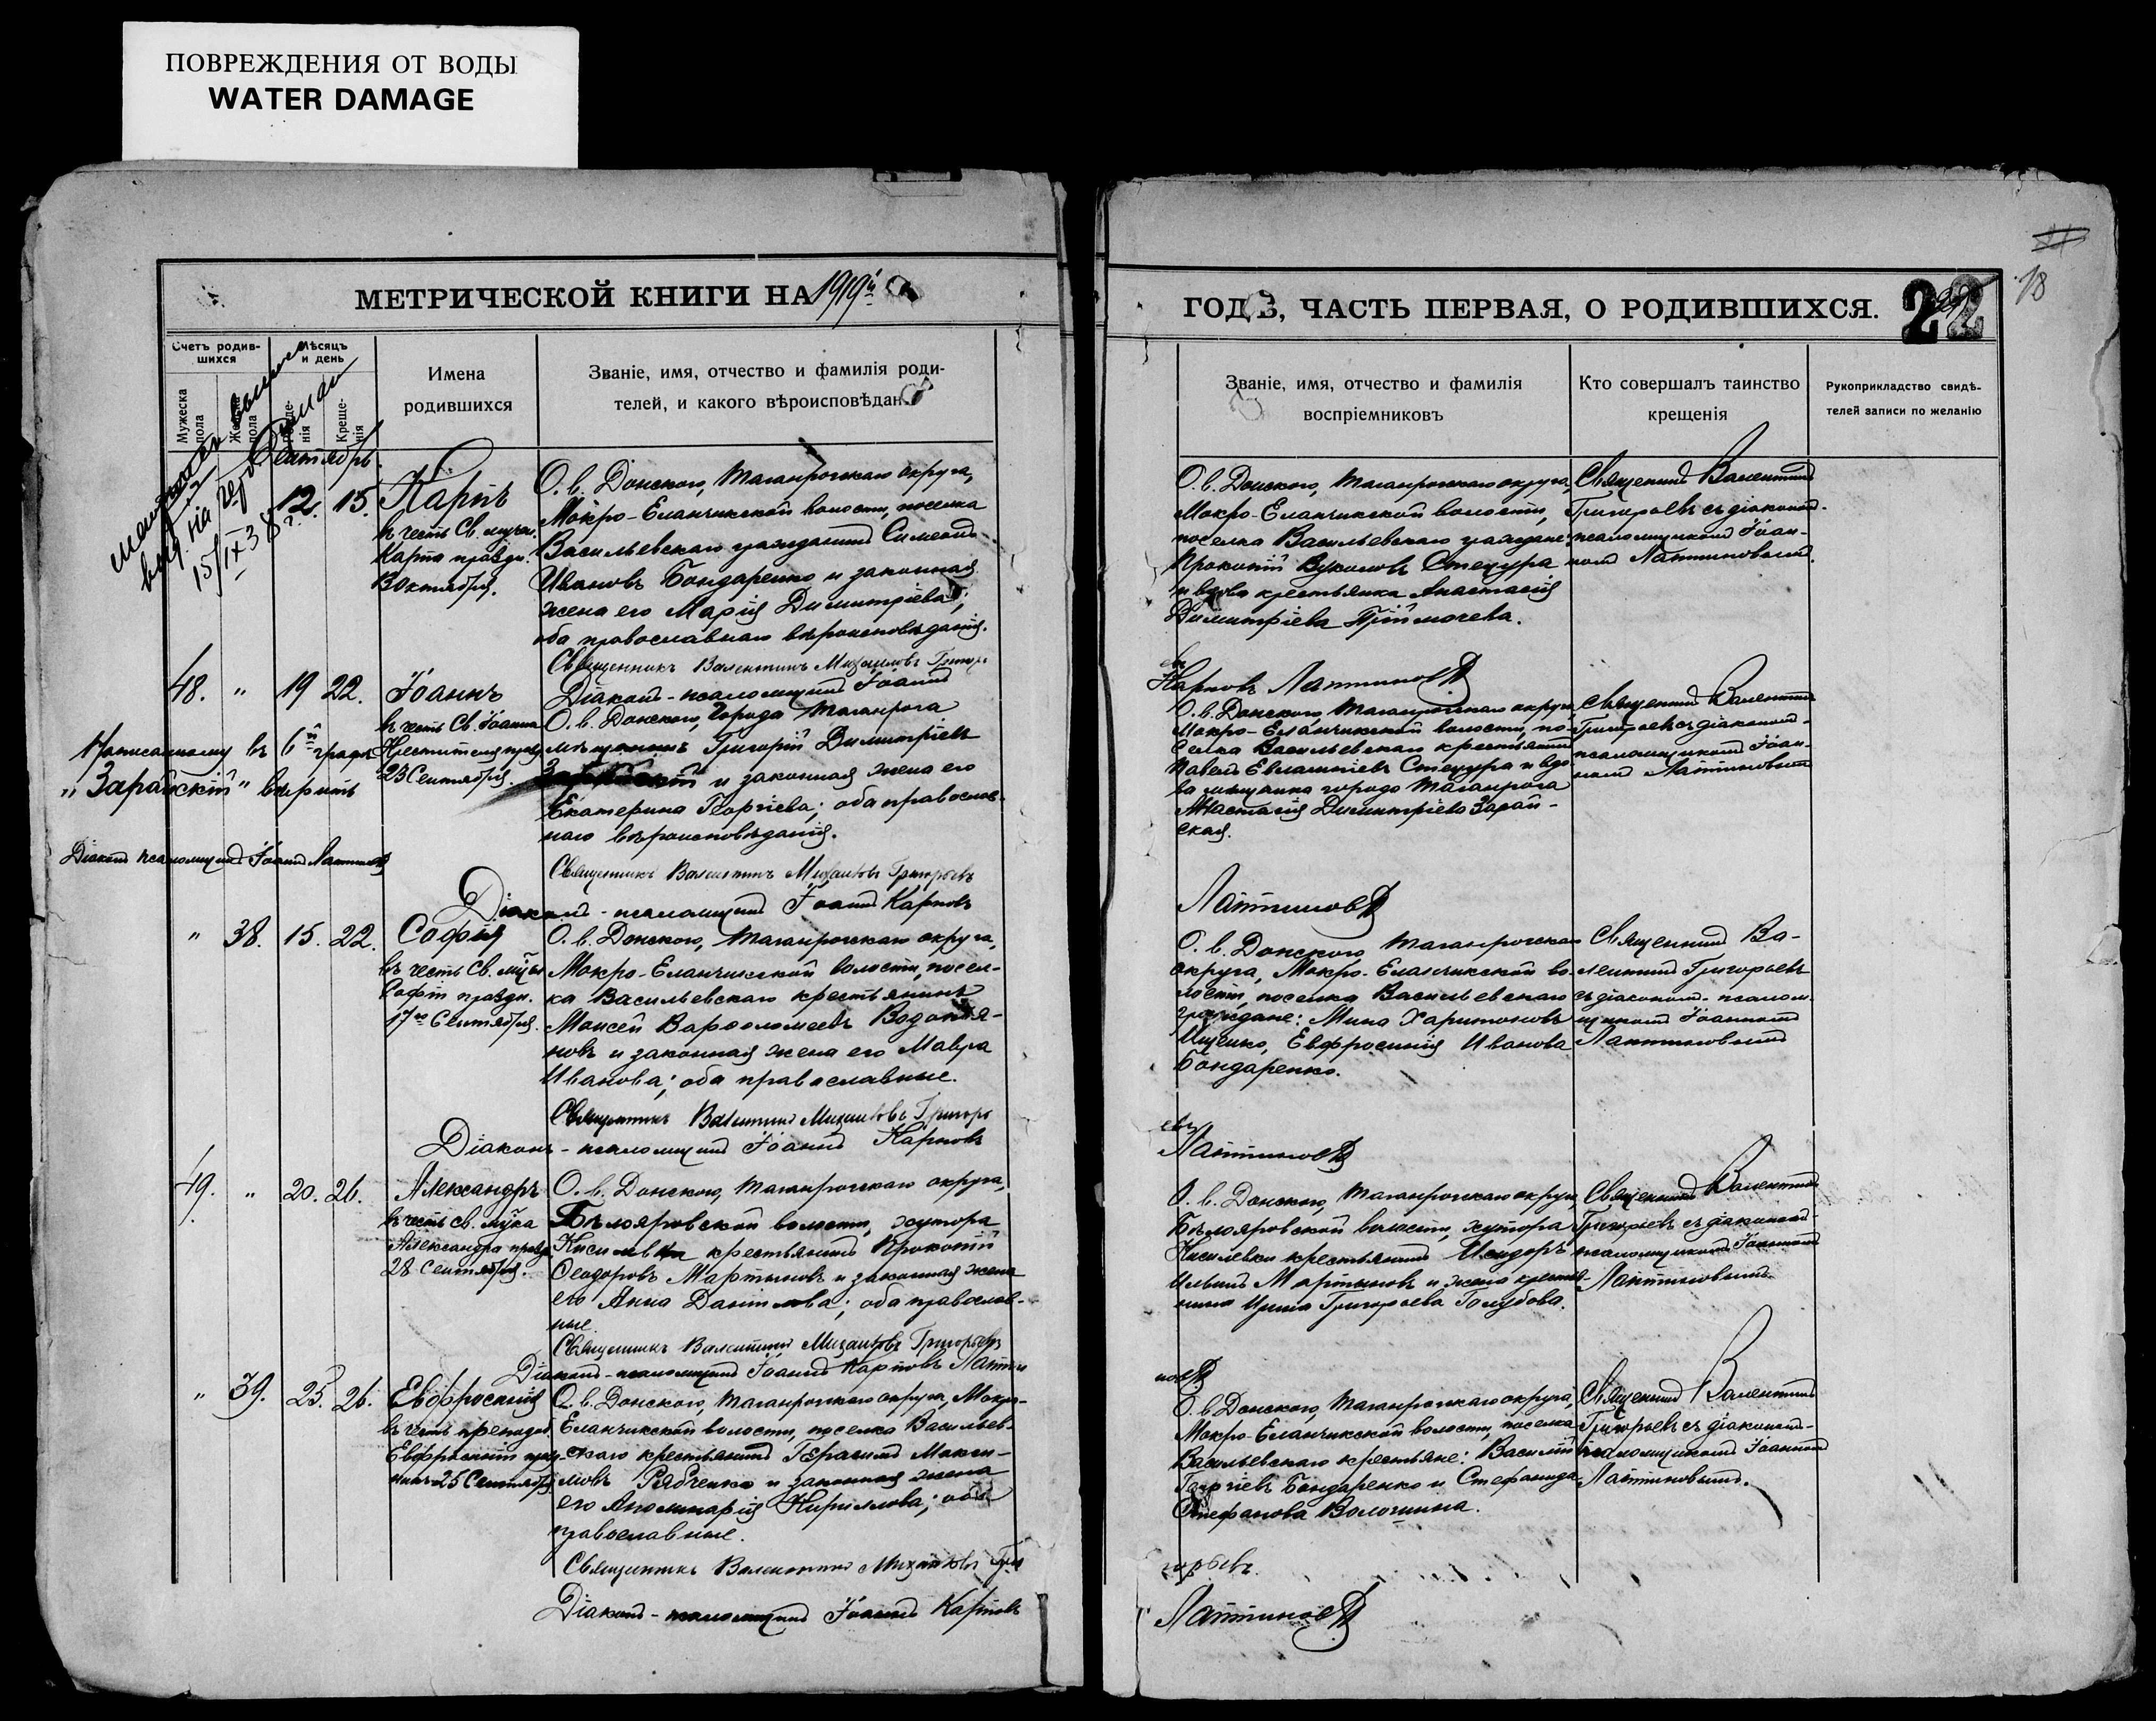 ПОВРЕЖДЕНИЯ ОТ ВОДЫ
WATER DAMAGE
МЕТРИЧЕСКОЙ КНИГИ НА 1919й
Счетъ родив-
шихся
Мѣсяцъ
и день
Мужеска
пола
Креще-
нія
Имена
родившихся
Званіе, имя, отчество и фамилія роди-
телей, и какого вѣроисповѣдан
15/IX 38 г.
Сентябрь.
12. 15. Карпъ
въ честь Св. мучен.
Карпа праздн.
13 Октября.
О. в. Донского, Таганрогскаго округа,
Мокро-Еланчикской волости, поселка
Васильевскаго гражданинъ Симеонъ
Ивановъ Бондаренко и законная
жена его Марія Димитріева;
оба православнаго вѣроисповѣданія.
Священникъ Валентинъ Михаиловъ Григорь
Діаконъ-псаломщикъ Іоаннъ
48. " 19 22. Іоаннъ
въ честь Св. Іоанна
Крестителя праздн.
23 Сентября.
О. в. Донского, города Таганрога
мѣщанинъ Григорій Димитріевъ
и законная жена его
Екатерина Георгіева; оба православ-
наго вѣроисповѣданія.
Написанному въ 6й графѣ
"Зарайскій" вѣрить
Діаконъ псаломщикъ Іоаннъ Лаптиновъ
Священникъ Валентинъ Михаиловъ Григорьевъ
Діаконъ-псаломщикъ Іоаннъ Карповъ
" 38. 15. 22. Софія
въ честь Св. муч-цы
Софіи праздн.
17го Сентября.
О. в. Донского, Таганрогскаго округа,
Мокро-Еланчикской волости, посел-
ка Васильевскаго крестьянинъ
Моисей Варѳоломеевъ Водопья-
новъ и законная жена его Мавра
Иванова; оба православные.
Священникъ Валентинъ Михаиловъ Григорь
Діаконъ-псаломщикъ Іоаннъ Карповъ
49. " 20. 26. Александръ
въ честь св. муч-ка
Александра праздн.
28 Сентября.
О. в. Донского, Таганрогскаго округа,
Бѣлояровской волости, хутора
Кисилевка крестьянинъ Прокопій
Ѳеодоровъ Мартыновъ и законная жена
его Анна Даніилова; оба православ-
ные.
Священникъ Валентинъ Михаиловъ Григорьевъ
Діаконъ-псаломщикъ Іоаннъ Карповъ Лапти
" 39. 25. 26. Евфросинія
въ честь преподоб.
Евфросиніи празд-
25 Сентября
О. в. Донского, Таганрогскаго округа, Мокро-
Еланчикской волости, поселка Васильев-
скаго крестьянинъ Герасимъ Макси-
мовъ Рябченко и законная жена
его Аполинарія Кирилова; оба
православные.
Священникъ Валентинъ Михаиловъ Гри
Діаконъ-псаломщикъ Іоаннъ Карповъ
18
ГОДЪ, ЧАСТЬ ПЕРВАЯ, О РОДИВШИХСЯ. 22
Званіе, имя, отчество и фамилія
воспріемниковъ
Кто совершалъ таинство
крещенія
Рукоприкладство свидѣ-
телей записи по желанію
О. в. Донского, Таганрогскаго округа,
Мокро-Еланчикской волости,
поселка Васильевскаго граждане:
Прокопій Вуколовъ Стецура
и вдова крестьянка Анастасія
Димитріева Приймачева.
Священникъ Валентинъ
Григорьевъ съ діакономъ-
псаломщикомъ Іоан-
номъ Лаптиновымъ.
евъ
Карповъ Лаптиновъ
О. в. Донского, Таганрогскаго округа,
Мокро-Еланчикской волости, по-
селка Васильевскаго крестьянинъ
Павелъ Евлампіевъ Стецура и вдо-
ва мѣщанка города Таганрога
Анастасія Димитріева Зарай-
ская.
Священникъ Валентинъ
Григорьевъ съ діакономъ-
псаломщикомъ Іоан-
номъ Лаптиновымъ
Лаптиновъ
О. в. Донского Таганрогскаго
округа, Мокро-Еланчикской во-
лости, поселка Васильевскаго
граждане: Мина Харитоновъ
Ищенко, Евфросинія Иванова
Бондаренко.
Священникъ Ва-
лентинъ Григорьевъ
съ діакономъ-псалом-
щикомъ Іоанномъ
Лаптиновымъ
евъ
Лаптиновъ
О. в. Донского, Таганрогскаго округа,
Бѣлояровской волости, хутора
Кисилевки крестьянинъ Исидоръ
Ильинъ Мартыновъ и жена крестья-
нина Ирина Григорьева Голубова.
Священникъ Валентинъ
Григорьевъ съ діакономъ-
псаломщикомъ Іоанномъ
Лаптиновымъ.
новъ
О. в. Донского, Таганрогскаго округа,
Мокро-Еланчикской волости, поселка
Васильевскаго крестьяне: Василій
Георгіевъ Бондаренко и Стефанида
Стефанова Волошина.
Священникъ Валентинъ
Григорьевъ съ діакономъ-
псаломщикомъ Іоанномъ
Лаптиновымъ.
горьевъ.
Лаптиновъ